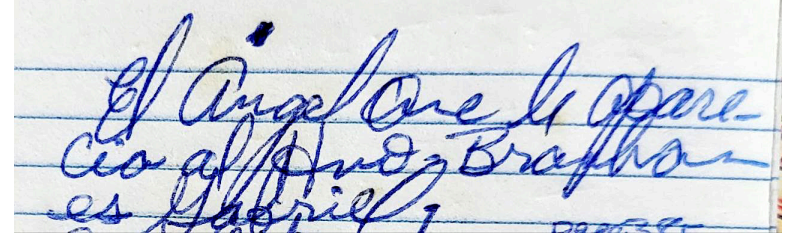 El Ángel Que le apare-
cio al Hno. Branham
es Gabriel,